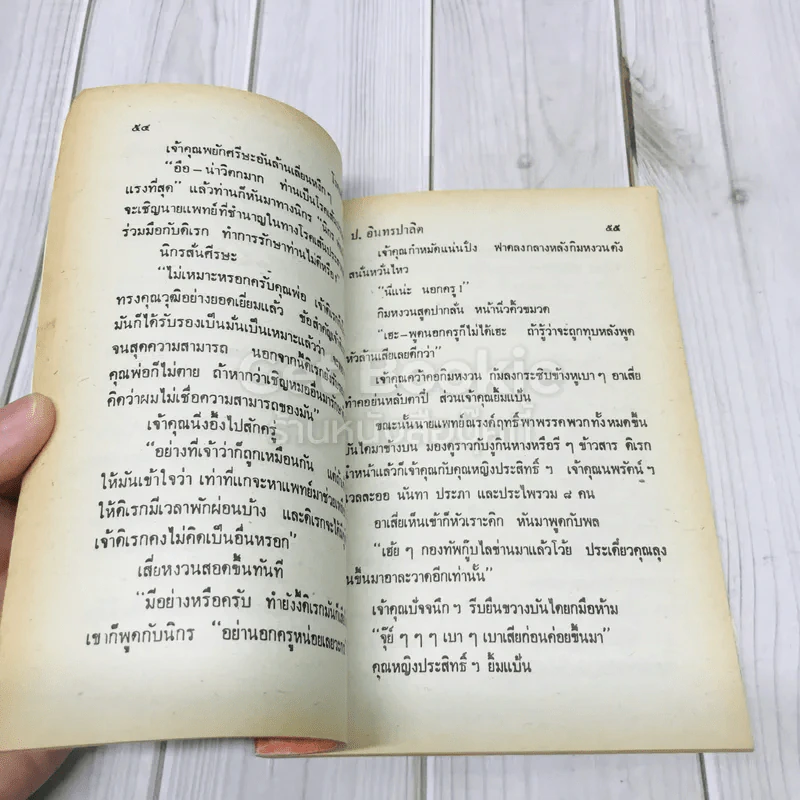 ๕๔
เจ้าคุณพยักศรีษะอันล้านเลี่ยนหงึก ๆ
“อือ – น่าวิตกมาก ท่านเป็นโรค
แรงที่สุด” แล้วท่านก็หันมาทางนิกร “นิกร
จะเชิญนายแพทย์ที่ชำนาญในทางโรคเส้นประสาท
ร่วมมือกับดิเรก ทำการรักษาท่านไม่ดีหรือ?”
นิกรสั่นศีรษะ
“ไม่เหมาะหรอกครับคุณพ่อ เจ้าดิเรก
ทรงคุณวุฒิอย่างยอดเยี่ยมแล้ว ข้อสำคัญ
มันก็ได้รับรองเป็นมั่นเป็นเหมาะแล้วว่า
จนสุดความสามารถ นอกจากนี้ดิเรกยัง
คุณพ่อก็ไม่ตาย ถ้าหากว่าเชิญหมออื่นมารักษา
คิดว่าผมไม่เชื่อความสามารถของมัน”
เจ้าคุณนิ่งอึ้งไปสักครู่
“อย่างที่เจ้าว่าก็ถูกเหมือนกัน แต่
ให้มันเข้าใจว่า เท่าที่แกจะหาแพทย์มาช่วย
ให้ดิเรกมีเวลาพักผ่อนบ้าง และดิเรกจะได้
เจ้าดิเรกคงไม่คิดเป็นอื่นหรอก”
เสี่ยหงวนสอดขึ้นทันที
“มีอย่างหรือครับ ทำยังงี้ดิเรกมันก็
เขาก็พูดกับนิกร “อย่านอกครูหน่อยเลยวะ
ป. อินทรปาลิต
๕๕
เจ้าคุณกำหมัดแน่นปึ๋ง ฟาดลงกลางหลังกิมหงวนดัง
สนั่นหวั่นไหว
“นี่แน่ะ นอกครู !”
กิมหงวนสูดปากลั่น หน้านิ่วคิ้วขมวด
“เฮะ–พูดนอกครูก็ไม่ได้เฮะ ถ้ารู้ว่าจะถูกทุบหลังพูด
หัวล้านเสียเลยดีกว่า”
เจ้าคุณคว้าคอกิมหงวน ก้มลงกระซิบข้างหูเบา ๆ อาเสี่ย
ทำคอย่นหลับตาปี๋ ส่วนเจ้าคุณยิ้มแป้น
ขณะนั้นนายแพทย์ณรงค์ฤทธิ์พาพรรคพวกทั้งหมดขึ้น
บันไดมาข้างบน มองดูราวกับงูกินหางหรือรี ๆ ข้าวสาร ดิเรก
นำหน้าแล้วก็เจ้าคุณกับคุณหญิงประสิทธิ์ ฯ เจ้าคุณนพรัตน์ ฯ
เวลละออ นันทา ประภา และประไพรวม ๘ คน
อาเสี่ยเห็นเข้าก็หัวเราะคิก หันมาพูดกับพล
“เฮ้ย ๆ กองทัพกู๊บไลข่านมาแล้วโว้ย ประเดี๋ยวคุณลุง
นขึ้นมาอาละวาดอีกเท่านั้น”
เจ้าคุณปัจจนึก ฯ รีบยืนขวางบันไดยกมือห้าม
“จุ๊ย์ ๆ ๆ ๆ เบา ๆ เบาเสียก่อนค่อยขึ้นมา”
คุณหญิงประสิทธิ์ ฯ ยิ้มแป้น
Get Bookie
ร้านหนังสือบุ๊คกี้